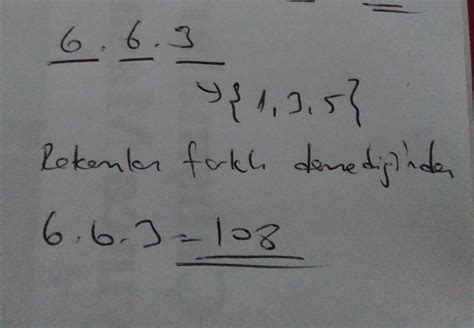 6 . 6 . 3
→ {1, 3, 5}
Rakamları farklı demediğinden
6.6.3 = 108